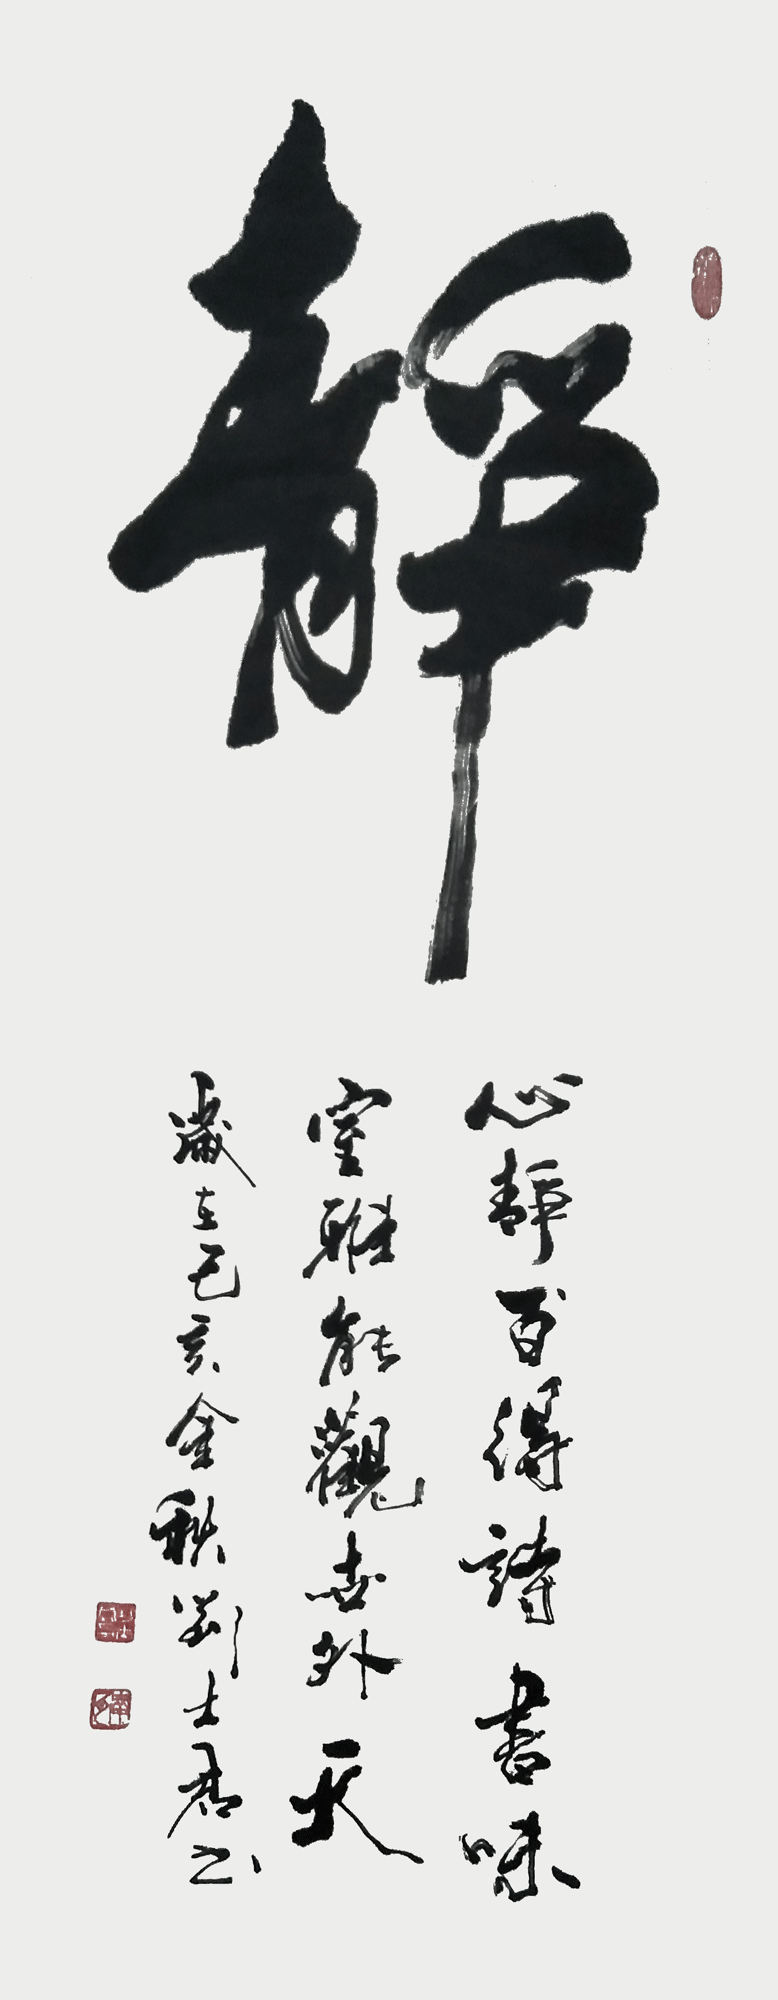 靜
心靜百得詩書味
室雅能觀世外天
歲在己亥金秋劉士君书